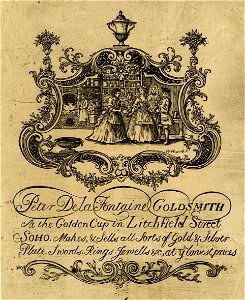 Peter De la Fontaine GOLDSMITH
At the Golden Cup in Litchfield Street
SOHO. Makes, & Sells all Sorts of Gold & Silver
Plate Swords Rings Jewells &c. at yͤ lowest prices